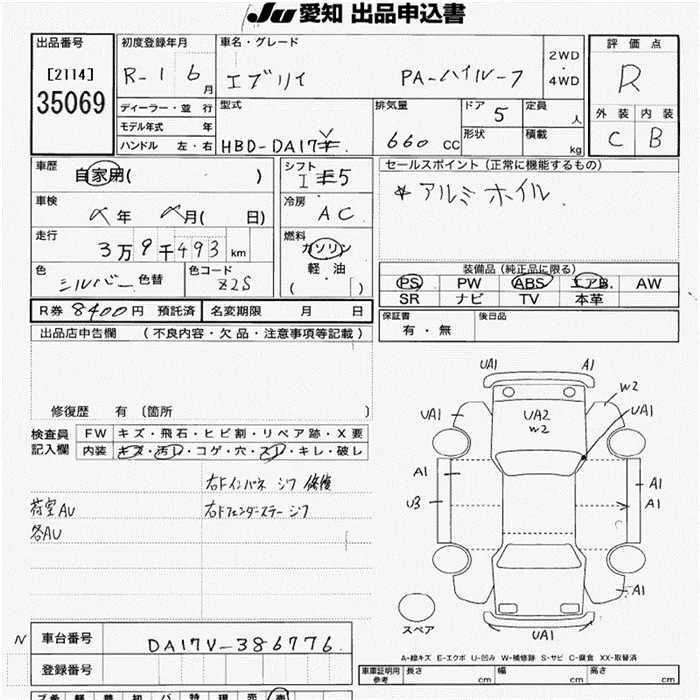 Ju 愛知 出品申込書
出品番号
[2114]
35069
初度登録年月
R-1 6月
車名・グレード
エブリイ PA-ハイルーフ
2WD
4WD
評価点
R
ディーラー・並行
モデル年式 年
ハンドル 左・右
型式
HBD-DA17V
排気量
660 CC
ドア 5
形状
定員 人
積載 kg
外装 内装
C B
車歴
自家用( )
シフト
I 5
セールスポイント (正常に機能するもの)
☆アルミホイル
車検
年 月( 日)
冷房
AC
走行
3万9千493km
燃料
ガソリン
軽・油
( ・ )
色
シルバー 色替
色コード
Z2S
装備品 (純正品に限る)
PS PW ABS エアB. AW
SR ナビ TV 本革
R券 8400円 預託済 名変期限 月 日
保証書
有・無
後日品
出品店申告欄 (不良内容・欠品・注意事項等記載)
修復歴 有 〔箇所 〕
検査員
記入欄
FW キズ・飛石・ヒビ割・リペア跡・X要
内装 キズ・汚レ・コゲ・穴・スレ・キレ・破レ
右Fインパネ ジワ 修復
荷室AU 右Fフェンダーステー ジワ
各AU
UA1 A1
W2
UA1 UA2 UA1
W2
A1 A1
U3 A1
A1
スペア
UA1
A-線キズ E-エクボ U-凹み W-補修跡 S-サビ C-腐食 XX-取替済
N 車台番号 DA17V-386776.
登録番号
車庫証明用
参考
長さ cm 幅 cm 高さ cm